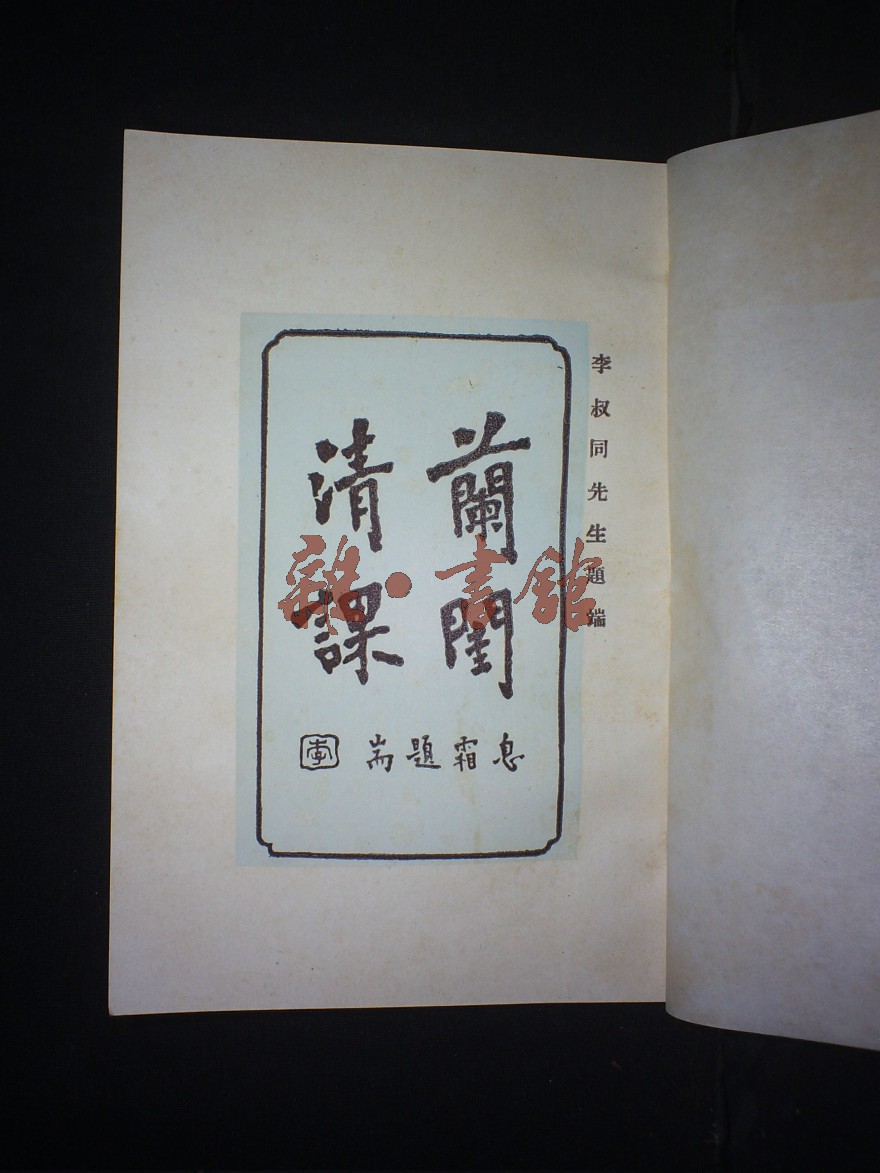 李叔同先生題端
蘭閨
清課
息霜題耑
李
雜·書館